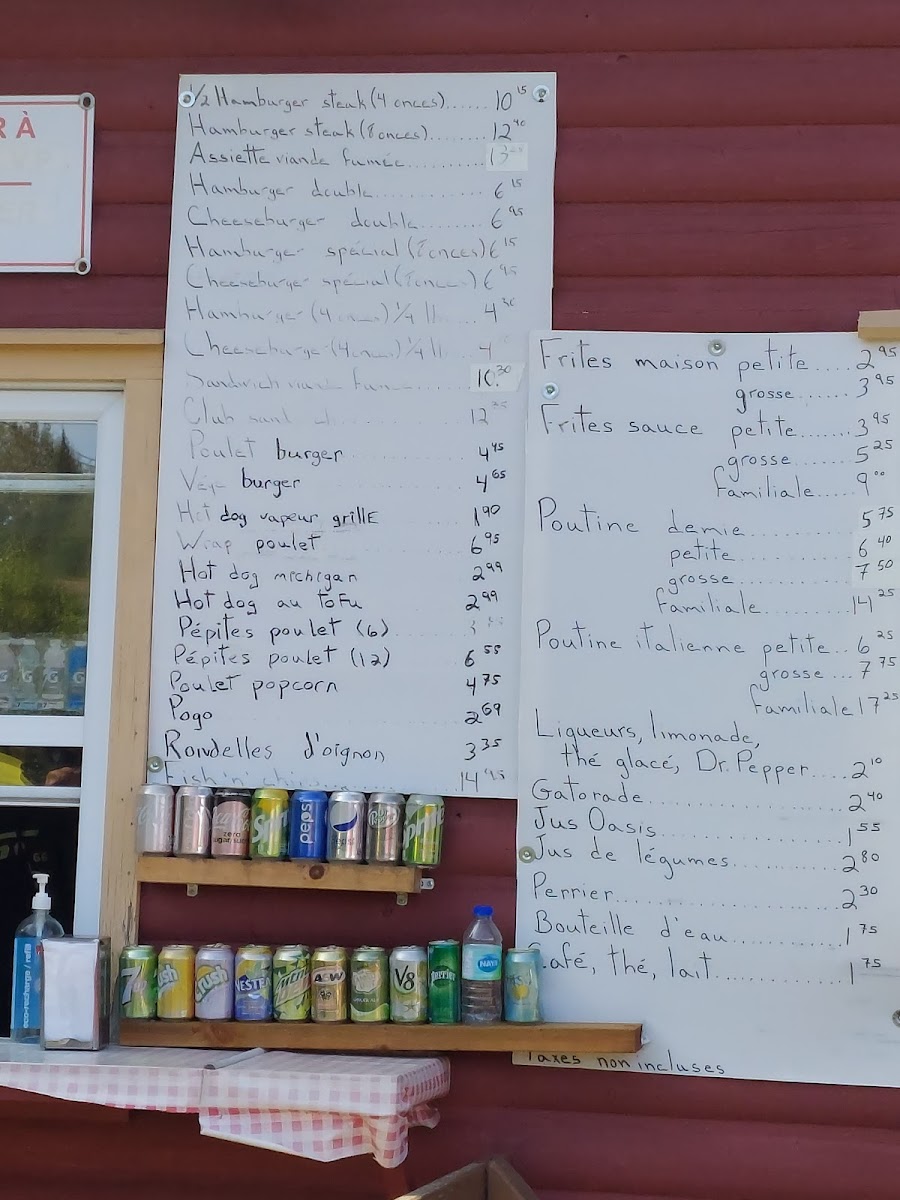 R À
1/2 Hamburger steak (4 onces)...... 10 15
Hamburger steak (8 onces)........ 12 40
Assiette viande fumée........... 13
Hamburger double............ 6 15
Cheeseburger double......... 6 95
Hamburger spécial (8 onces) 6 15
Cheeseburger spécial (8 onces) 6 95
Hamburger (4 onces) 1/4 lb.... 4 30
Cheeseburger (4 onces) 1/4 lb.... 4
Sandwich viande fumée 10.30
Club 12
Poulet burger 4 45
Végé burger 4 65
Hot dog vapeur grillE 1 90
Wrap poulet 6 95
Hot dog michigan 2 99
Hot dog au toFu 2 99
Pépites poulet (6)
Pépites poulet (12) 6 55
Poulet popcorn 4 75
Pogo 2 69
Rondelles d'oignon 3 35
Fish 'n' chi 14 95
Frites maison petite..... 2 95
grosse...... 3 95
Frites sauce petite....... 3 95
grosse....... 5 25
familiale..... 9 00
Poutine demie............ 5 75
petite............ 6 40
grosse............ 7 50
familiale......... 14 25
Poutine italienne petite.. 6 25
grosse... 7 75
familiale 17 25
Liqueurs, limonade,
thé glacé, Dr. Pepper.... 2 10
Gatorade.................. 2 40
Jus Oasis................. 1 55
Jus de légumes............ 2 80
Perrier................... 2 30
Bouteille d'eau........... 1 75
Café, thé, lait............. 1 75
Taxes non incluses
zero
Sprite
pepsi
Sprite
7
Crush
Crush
NESTEA
A&W
V8
Perrier
NAYA
eco-recharge / refill
G G G